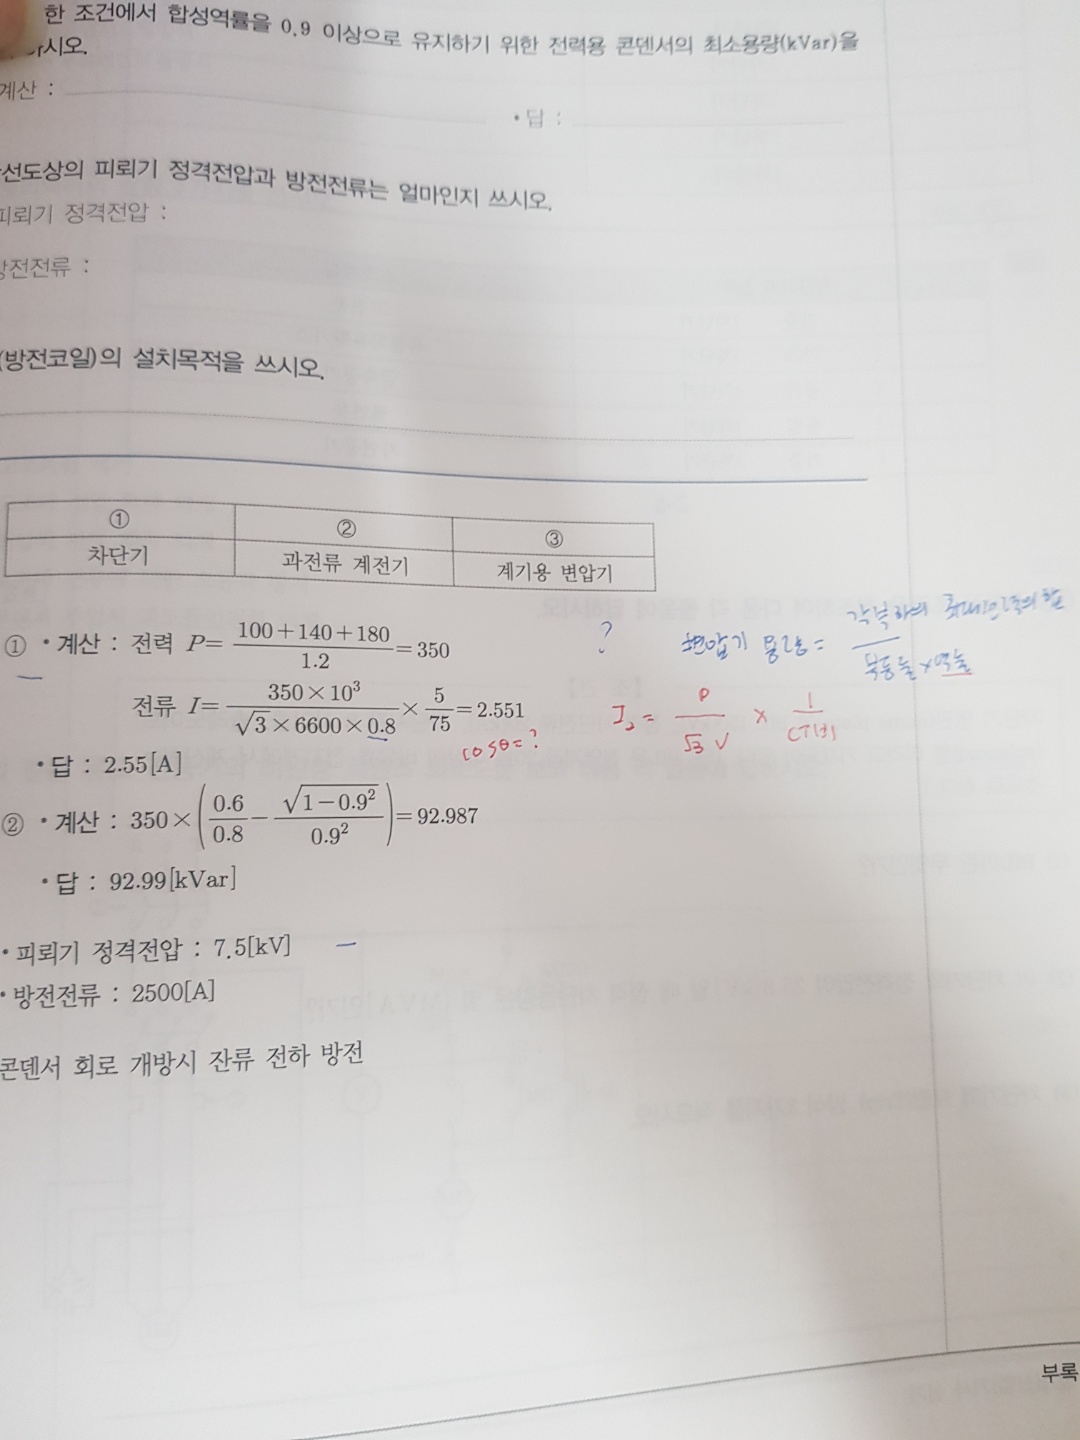 한 조건에서 합성역률을 0.9 이상으로 유지하기 위한 전력용 콘덴서의 최소용량(kVar)을
하시오.
계산 :
• 답 :
선도상의 피뢰기 정격전압과 방전전류는 얼마인지 쓰시오.
피뢰기 정격전압 :
방전전류 :
(방전코일)의 설치목적을 쓰시오.
① ② ③
차단기 과전류 계전기 계기용 변압기
① • 계산 : 전력 P= (100+140+180)/1.2 =350
? 변압기 용량 = 각 부하의 최대수요전력의 합 / 부등률×역률
전류 I= (350×10³)/(√3×6600×0.8) × 5/75 =2.551
cosθ=?
I₂ = P/(√3 V) × 1/CT비
• 답 : 2.55[A]
② • 계산 : 350×(0.6/0.8 − √(1−0.9²)/0.9²)=92.987
• 답 : 92.99[kVar]
• 피뢰기 정격전압 : 7.5[kV]
• 방전전류 : 2500[A]
콘덴서 회로 개방시 잔류 전하 방전
부록